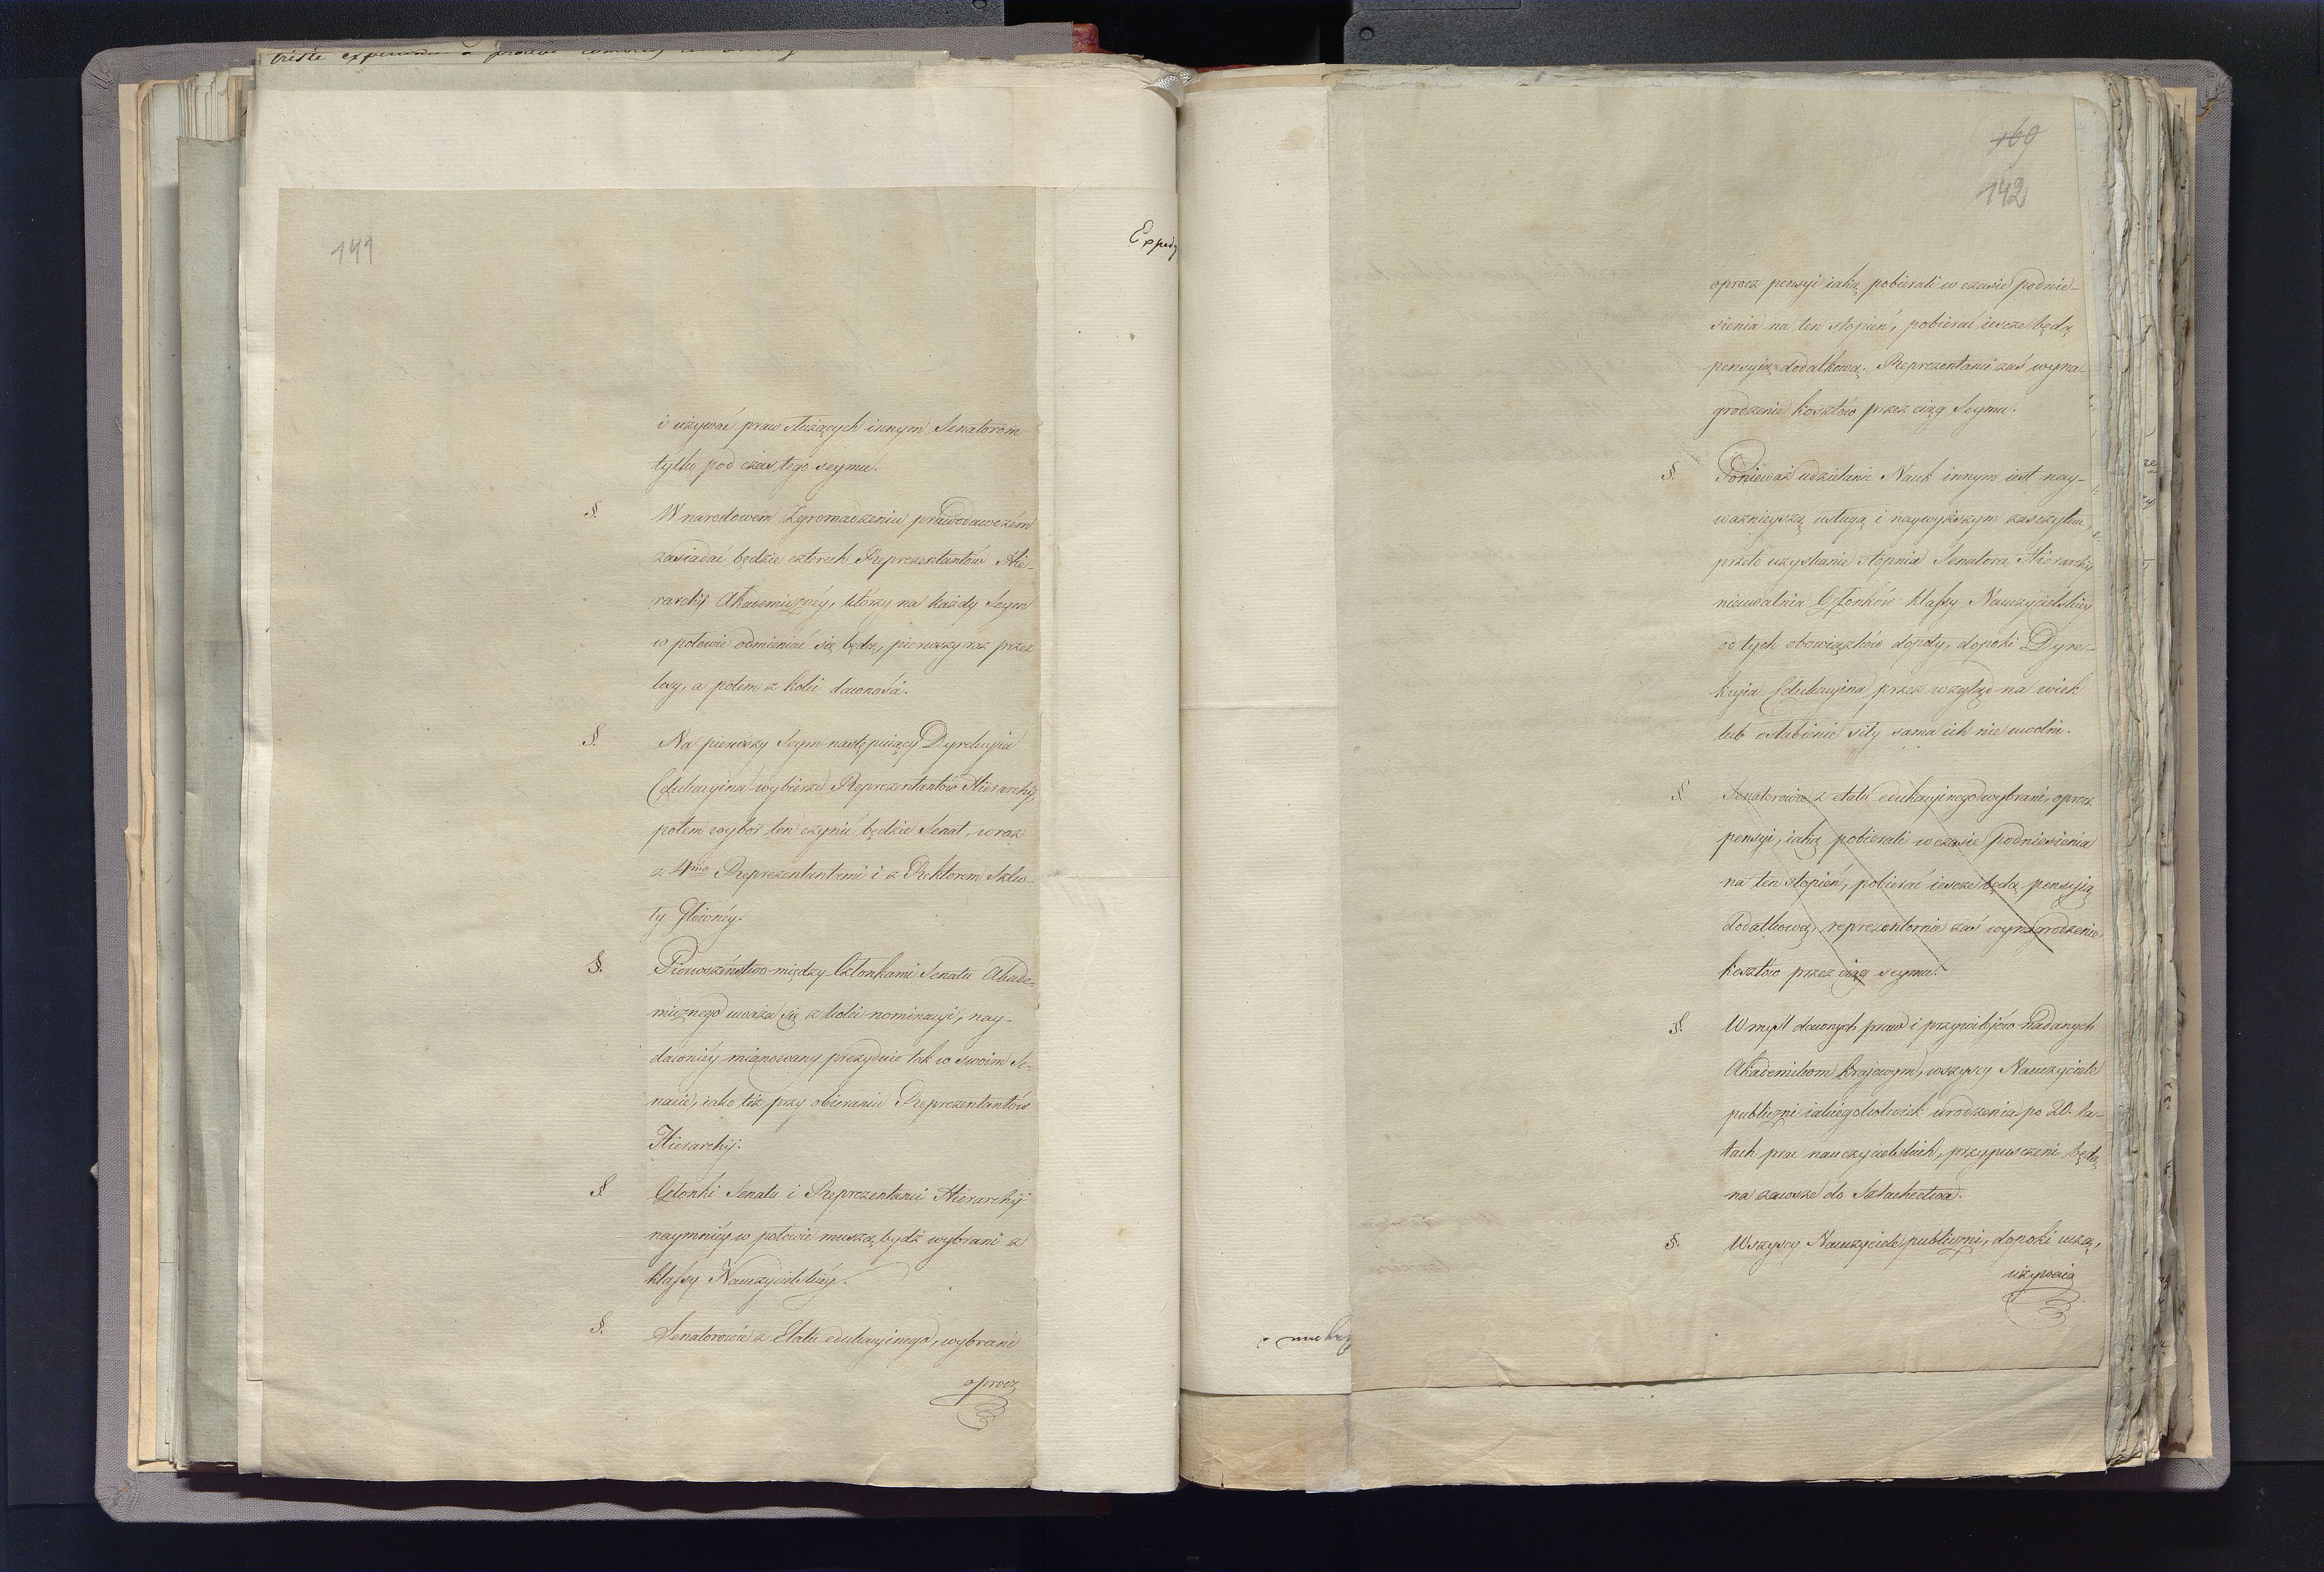 141
i używać praw służących innym Senatorom
tylko pod czas tego seymu.
§. W narodowem Zgromadzeniu prawodawczém
zasiadać będzie czterech Reprezentantów Hie-
rarchij Akademiczney, którzy na każdy Seym
w połowie odmieniać się będą, pierwszy raz przez
losy, a potem z kolei dawności.
§. Na pierwszy Seym następuiący Dyrekcyia
Edukacyina wybierze Reprezentantów Hierarchij,
potem wybor ten czynić będzie Senat, wraz
z 4ma Reprezentantami i z Rektorem Szko-
ły Główney.
§. Pierwszeństwo między Członkami Senatu Akade-
micznego uważa się z kolei nominacyi, nay-
dawniey mianowany prezyduie tak w swoim Se-
nacie, iako też przy obieraniu Reprezentantów
Hierarchij.
§. Członki Senatu i Reprezentanci Hierarchij
naymniey w połowie muszą bydź wybrani z
klassy Nauczycielskiey.
§. Senatorowie z Etatu edukacyinego, wybrani
oprocz
Exped
169
142
oprocz pensyi iaką pobierali w czasie podnie-
sienia na ten stopień, pobierać iescze będą
pensyią dodatkową. Reprezentanci zaś wyna-
grodzenie kosztów przez ciąg Seymu.
§. Ponieważ udzielanie Nauk innym iest nay-
ważnieyszą usługą i naywyższym zasczytem,
przeto uzyskanie stopnia Senatora Hierarchij
nieuwalnia Członków klassy Nauczycielskiey
od tych obowiązków dopoty, dopoki Dyre-
kcyia Edukacyina przez wzgląd na wiek
lub osłabienie siły sama ich nie uwolni.
§ Senatorowie z etatu edukacyinego wybrani, oprocz
pensyi, iaką pobierali w czasie podniesienia
na ten stopień, pobierać iescze będą pensyią
dodatkową, reprezentanci zaś wynagrodzenie
kosztów przez ciąg seymu.
§. W myśl dawnych praw i przywilejów nadanych
Akademikom krajowym, wszyscy Nauczyciele
publiczni iakiegokolwiek urodzenia po 20. la-
tach prac nauczycielskich, przypusczeni będą
na zawsze do Szlachectwa.
§. Wszyscy Nauczyciele publiczni, dopoki uczą,
używaią